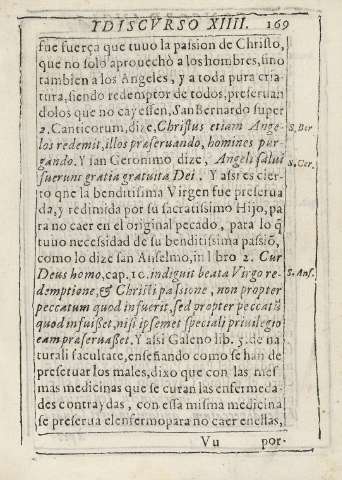 YDISCVRSO XIIII. 169
fue fuerça que tuuo la passion de Christo,
que no solo aprouechò à los hombres, sino
tambien a los Angeles, y a toda pura cria-
tura, siendo redemptor de todos, preseruan
dolos que no cayessen, San Bernardo super
2. Canticorum, dize, Christus etiam Ange- S. Ber
los redemit, illos præseruando, homines pur-
gando. Y san Geronimo dize, Angeli salui S. Ger.
fuerunt gratia gratuita Dei. Y assi es cier-
to que la benditissima Virgen fue preserua
da, y redimida por su sacratissimo Hijo, pa-
ra no caer en el original pecado, para lo q̃
tuuo necessidad de su benditissima passiõ,
como lo dize san Anselmo, in libro 2. Cur
Deus homo, cap. 10. indiguit beata Virgo re- S. Ans.
demptione, & Christi passione, non propter
peccatum quod infuerit, sed propter peccatũ
quod infuisset, nisi ipsemet speciali priuilegio
eam præseruasset. Y assi Galeno lib. 3. de na
turali facultate, enseñando como se han de
preseruar los males, dixo que con las mes
mas medicinas que se curan las enfermeda-
des contraydas, con essa misma medicina
se preserua el enfermo para no caer en ellas,
Vu por-